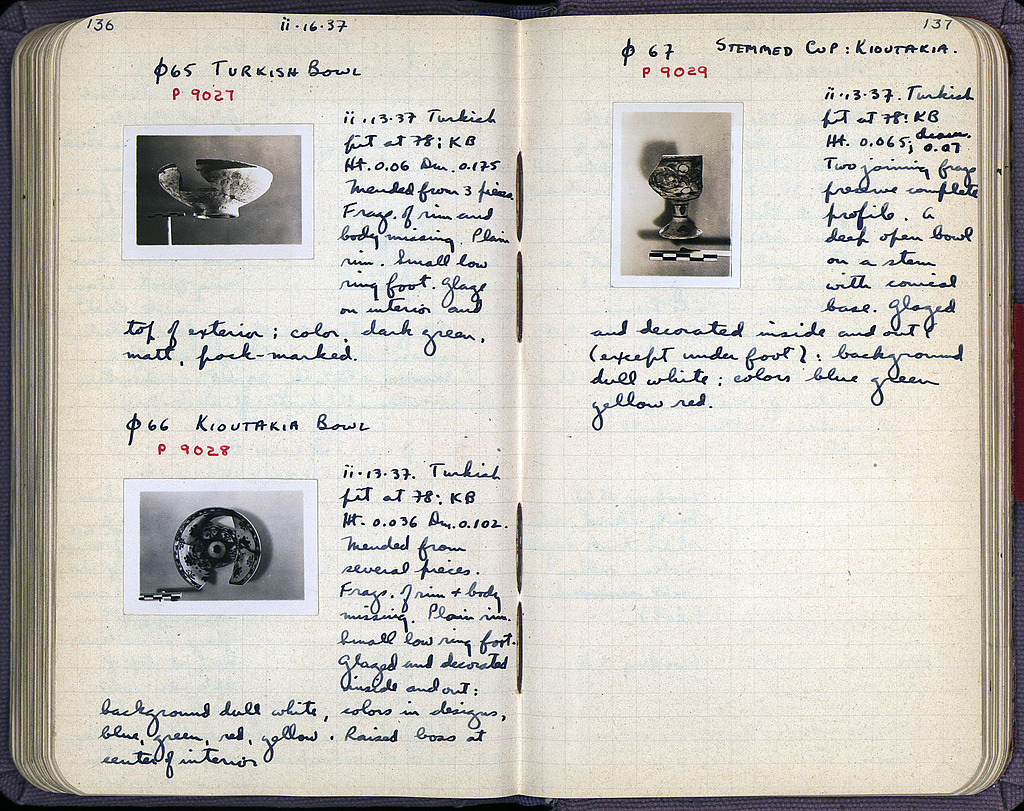 136
ii·16·37
φ65 TURKISH BOWL
P 9027
ii·13·37 Turkish
pit at 78: KB
Ht. 0.06 Dm. 0.175
Mended from 3 pieces.
Frags. of rim and
body missing. Plain
rim. Small low
ring foot. Glaze
on interior and
top of exterior; color, dark green,
matt, pock-marked.
φ66 KIOUTAKIA BOWL
P 9028
ii·13·37. Turkish
pit at 78: KB
Ht. 0.036 Dm. 0.102.
Mended from
several pieces.
Frags. of rim + body
missing. Plain rim.
Small low ring foot.
Glazed and decorated
inside and out:
background dull white, colors in designs,
blue, green, red, yellow. Raised boss at
center of interior
137
φ 67 STEMMED CUP: KIOUTAKIA.
P 9029
ii·13·37. Turkish
pit at 78: KB
Ht. 0.065; diam. 0.07
Two joining frags
preserve complete
profile. A
deep open bowl
on a stem
with conical
base. Glazed
and decorated inside and out
(except under foot): background
dull white: colors blue green
yellow red.